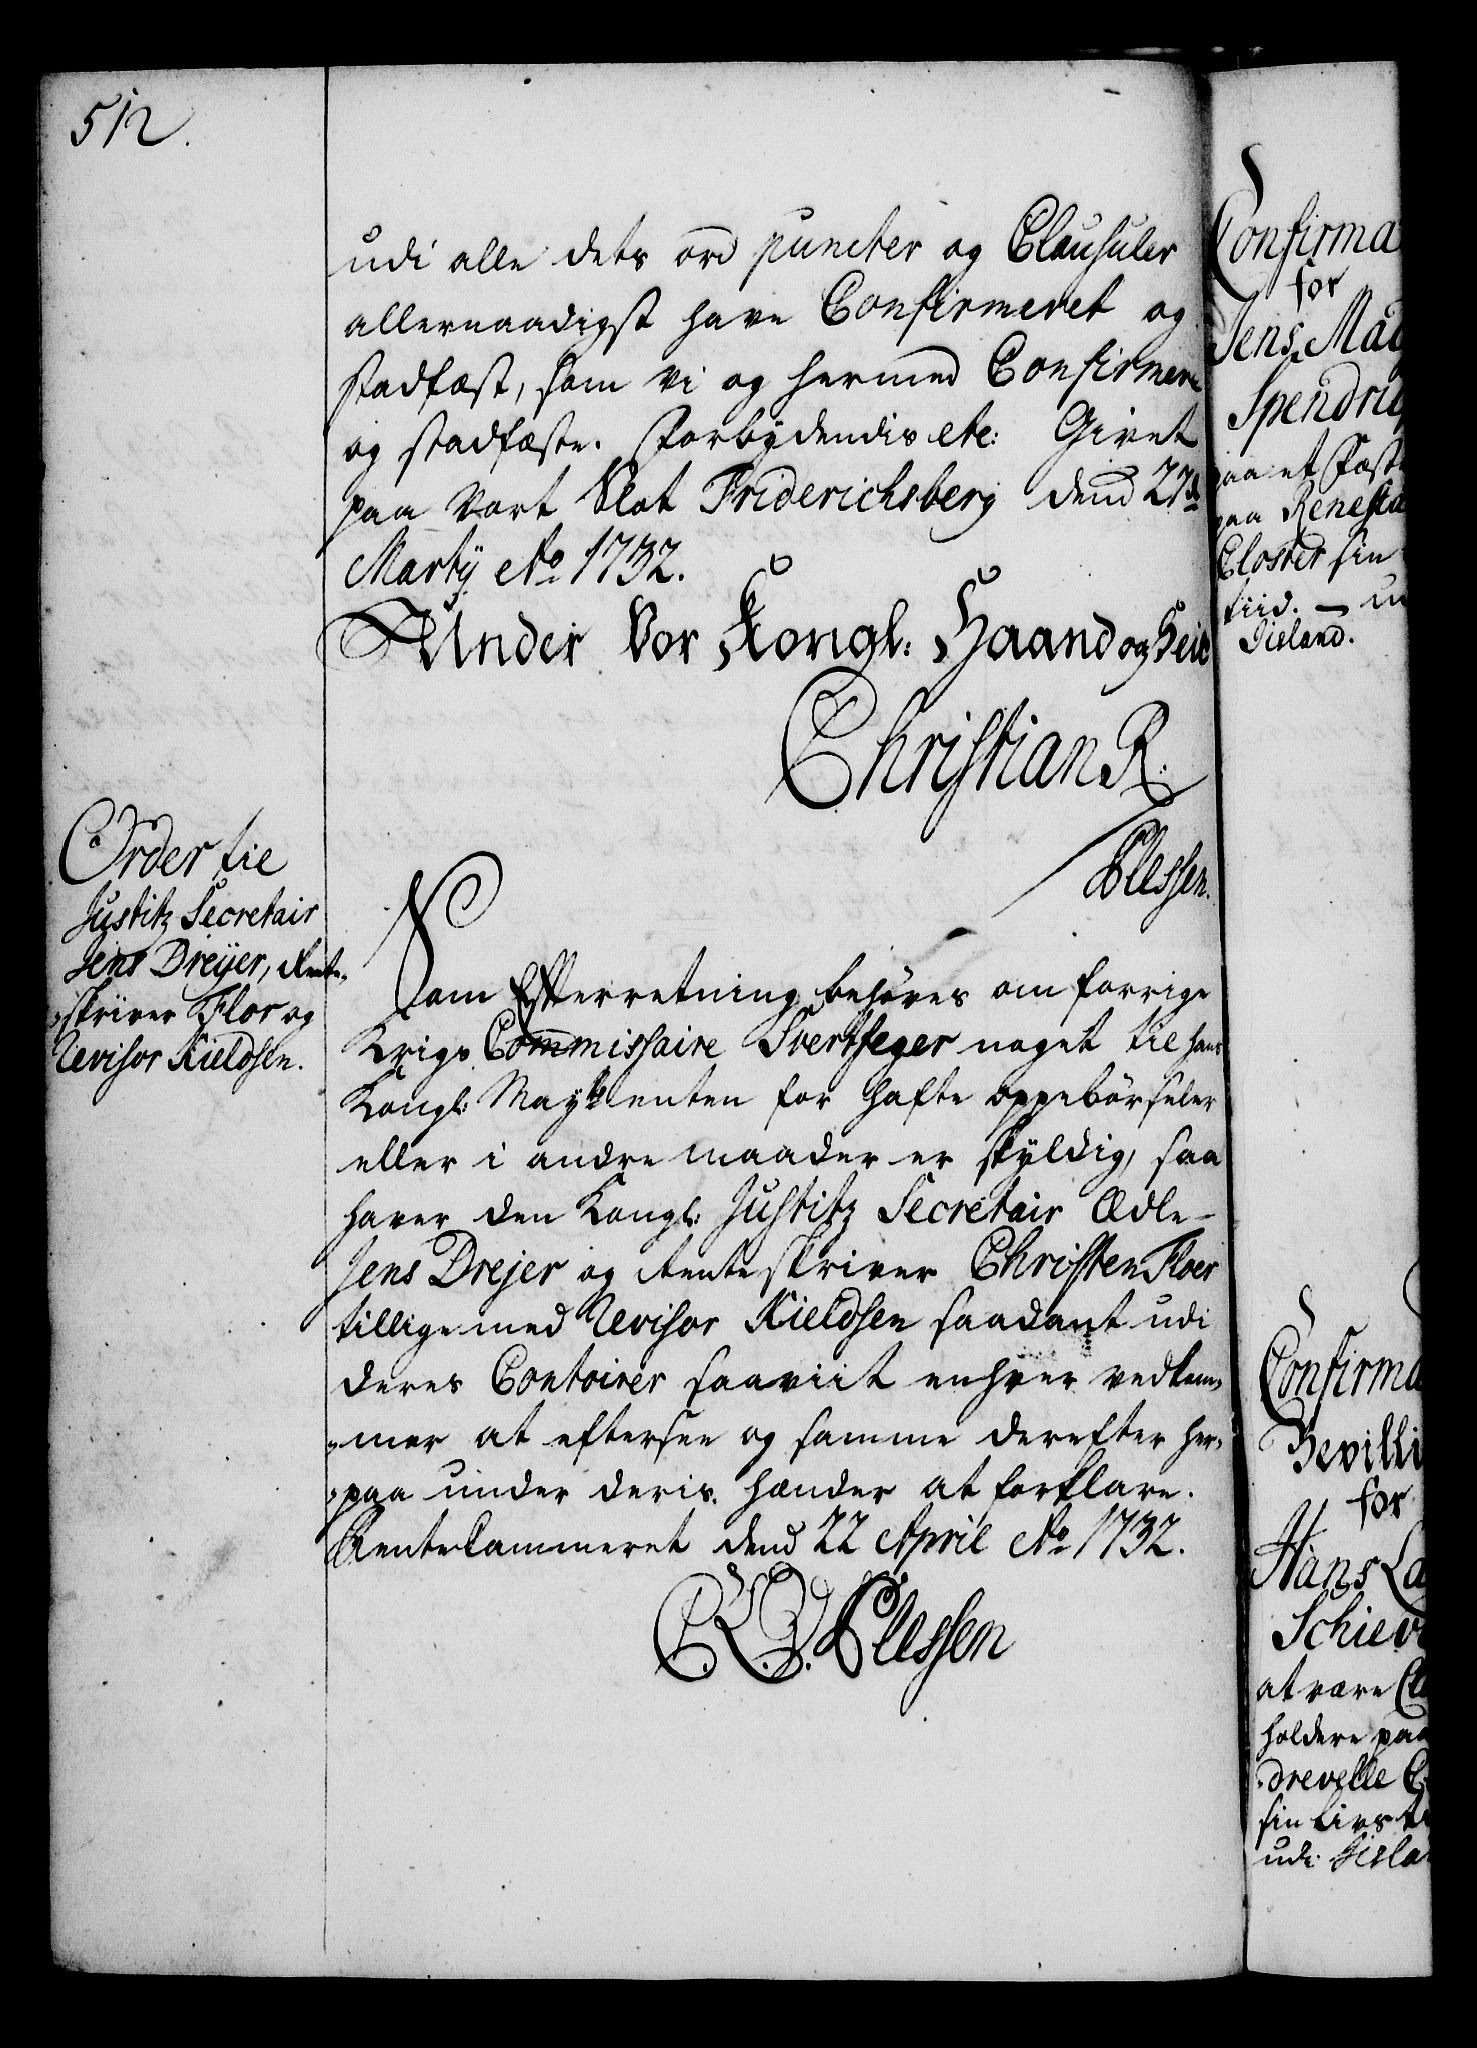 512.
udi alle dets ord puncter og Clausuler
allernaadigst have Confirmeret og
stadfæst, som vi og hermed Confirmere
og stadfæste. Forbydendis etc: Givet
paa Vort Slot Friderichsberg dend 27de
Marty Ao 1732.
Under Vor Kongl: Haand og Seig
Christian R.
Plessen.
Order til
Justitz Secretair
Jens Dreyer, Rente-
skriver Flor og
Revisor Kieldsen.
Som Efterretning behøves om forrige
Krigs Commissaire Svertfeger noget til hans
Kongl: Mayts enten for hafte oppebørseler
eller i andre maader er skyldig, saa
haver den Kongl: Justitz Secretair Ædle
Jens Drejer og Renteskriver Christen Floer
tillige med Revisor Kieldsen saadant udi
deres Contoirer saaviit enhver vedkom-
-mer at eftersee og samme derefter her-
-paa under deris hænder at forklare.
Rentekammeret dend 22 April Ao 1732.
C. A. V. Plessen
Confirma
for
Jens Mad
Spendru
paa et Fæste
paa Renesta
Closter sin
tiid. — u
Iisland.
Confirma
Bevilli
for
Hans La
Schiev
at være Clo
holdere paa
drevelle C
sin Livs ti
udi Iisla